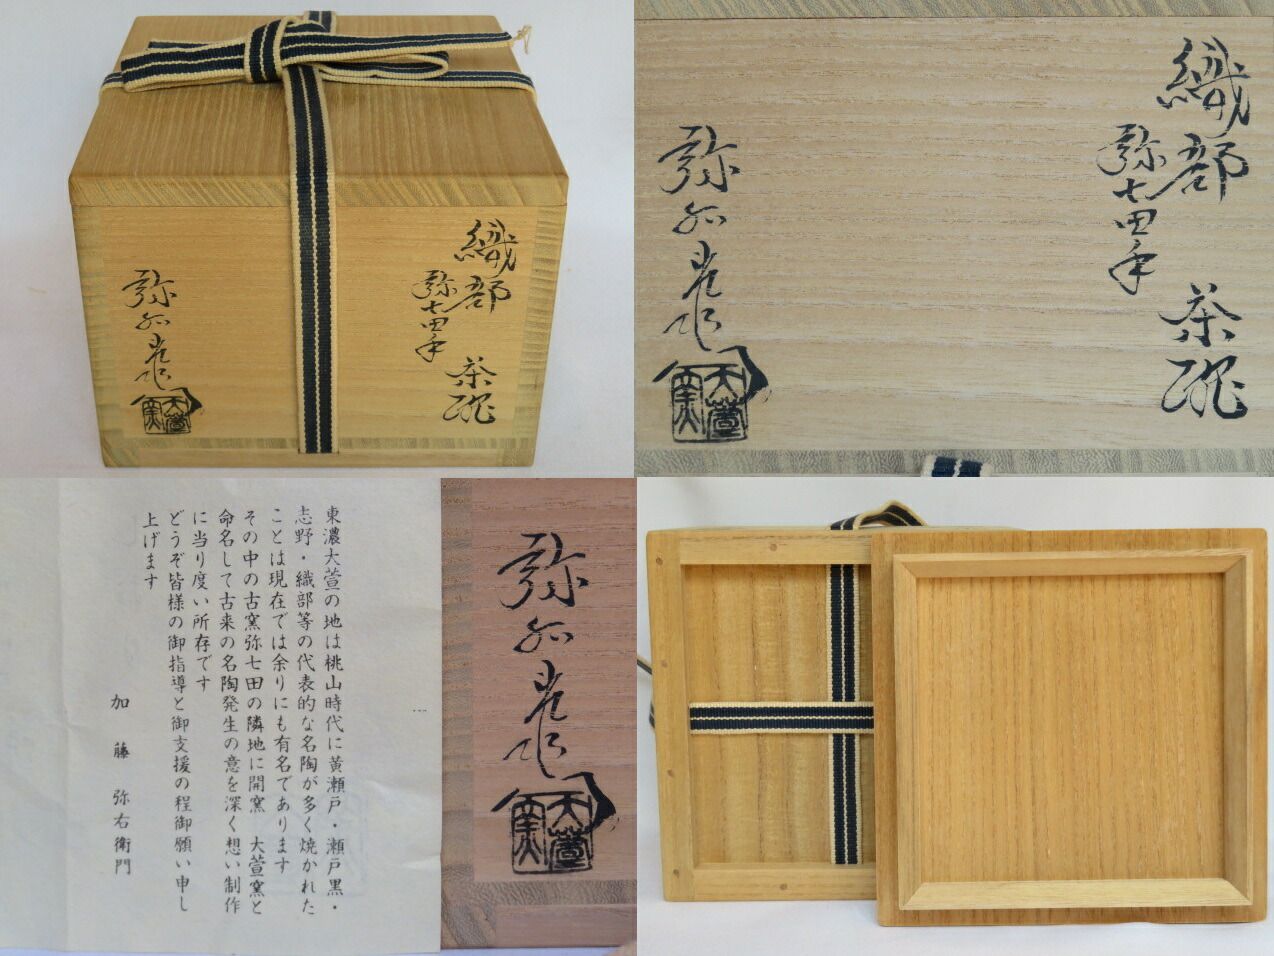 織部
弥七田手
茶碗
弥
作
大萱窯
織部
弥七田手
茶碗
弥
作
大萱窯
東濃大萱の地は桃山時代に黄瀬戸・瀬戸黒・
志野・織部等の代表的な名陶が多く焼かれた
ことは現在では余りにも有名であります
その中の古窯弥七田の隣地に開窯 大萱窯と
命名して古来の名陶発生の意を深く想い制作
に当り度い所存です
どうぞ皆様の御指導と御支援の程御願い申し
上げます
加藤弥右衛門
弥
作
大萱窯